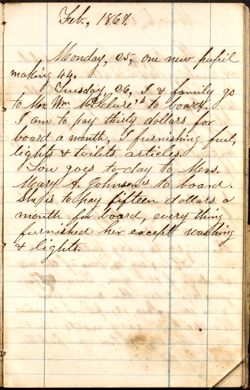 Feb, 1867.
Monday, 25, one new pupil
making 44.
Tuesday, 26, I & family go
to Mr. Wm McClure's to board.
I am to pay thirty dollars for
board a month, I furnishing fuel,
lights & toilet articles.
Lou goes to day to Mrs.
Mary A. Johnson's to board.
She is to pay fifteen dollars a
month for board, every thing
furnished her except washing
& lights.